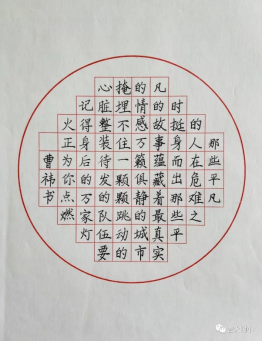 那些平凡
的人在危难之
时挺身而出那些平
凡的故事蕴藏着最真实
的情感万籁俱静的城市
掩埋不住一颗颗跳动的
心脏整装待发的队伍要
记得身后的万家灯
火正为你点燃
曹祎书